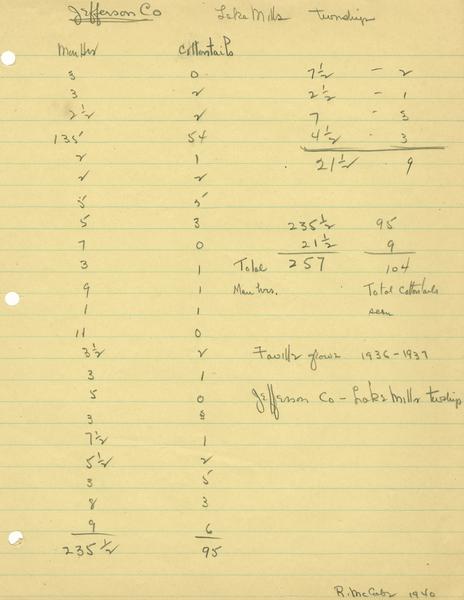 Jefferson Co Lake Mills township
Man Hrs Cottontails
3 0
3 2
2½ 2
135 54
2 1
2 2
5 5
5 3
7 0
3 1
9 1
1 1
11 0
3½ 2
3 1
5 0
3
7½ 1
5½ 2
3 5
8 3
9 6
235½ 95
7½ - 2
2½ - 1
7 - 3
4½ - 3
21½ 9
235½ 95
21½ 9
Total 257 104
Man hrs. Total cottontails
seen
Faville grove 1936-1937
Jefferson Co - Lake Mills township
R. McCabe 1940